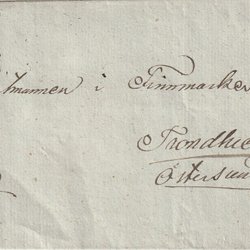 tmannen i Finnmarken
Trondhie
Östersun